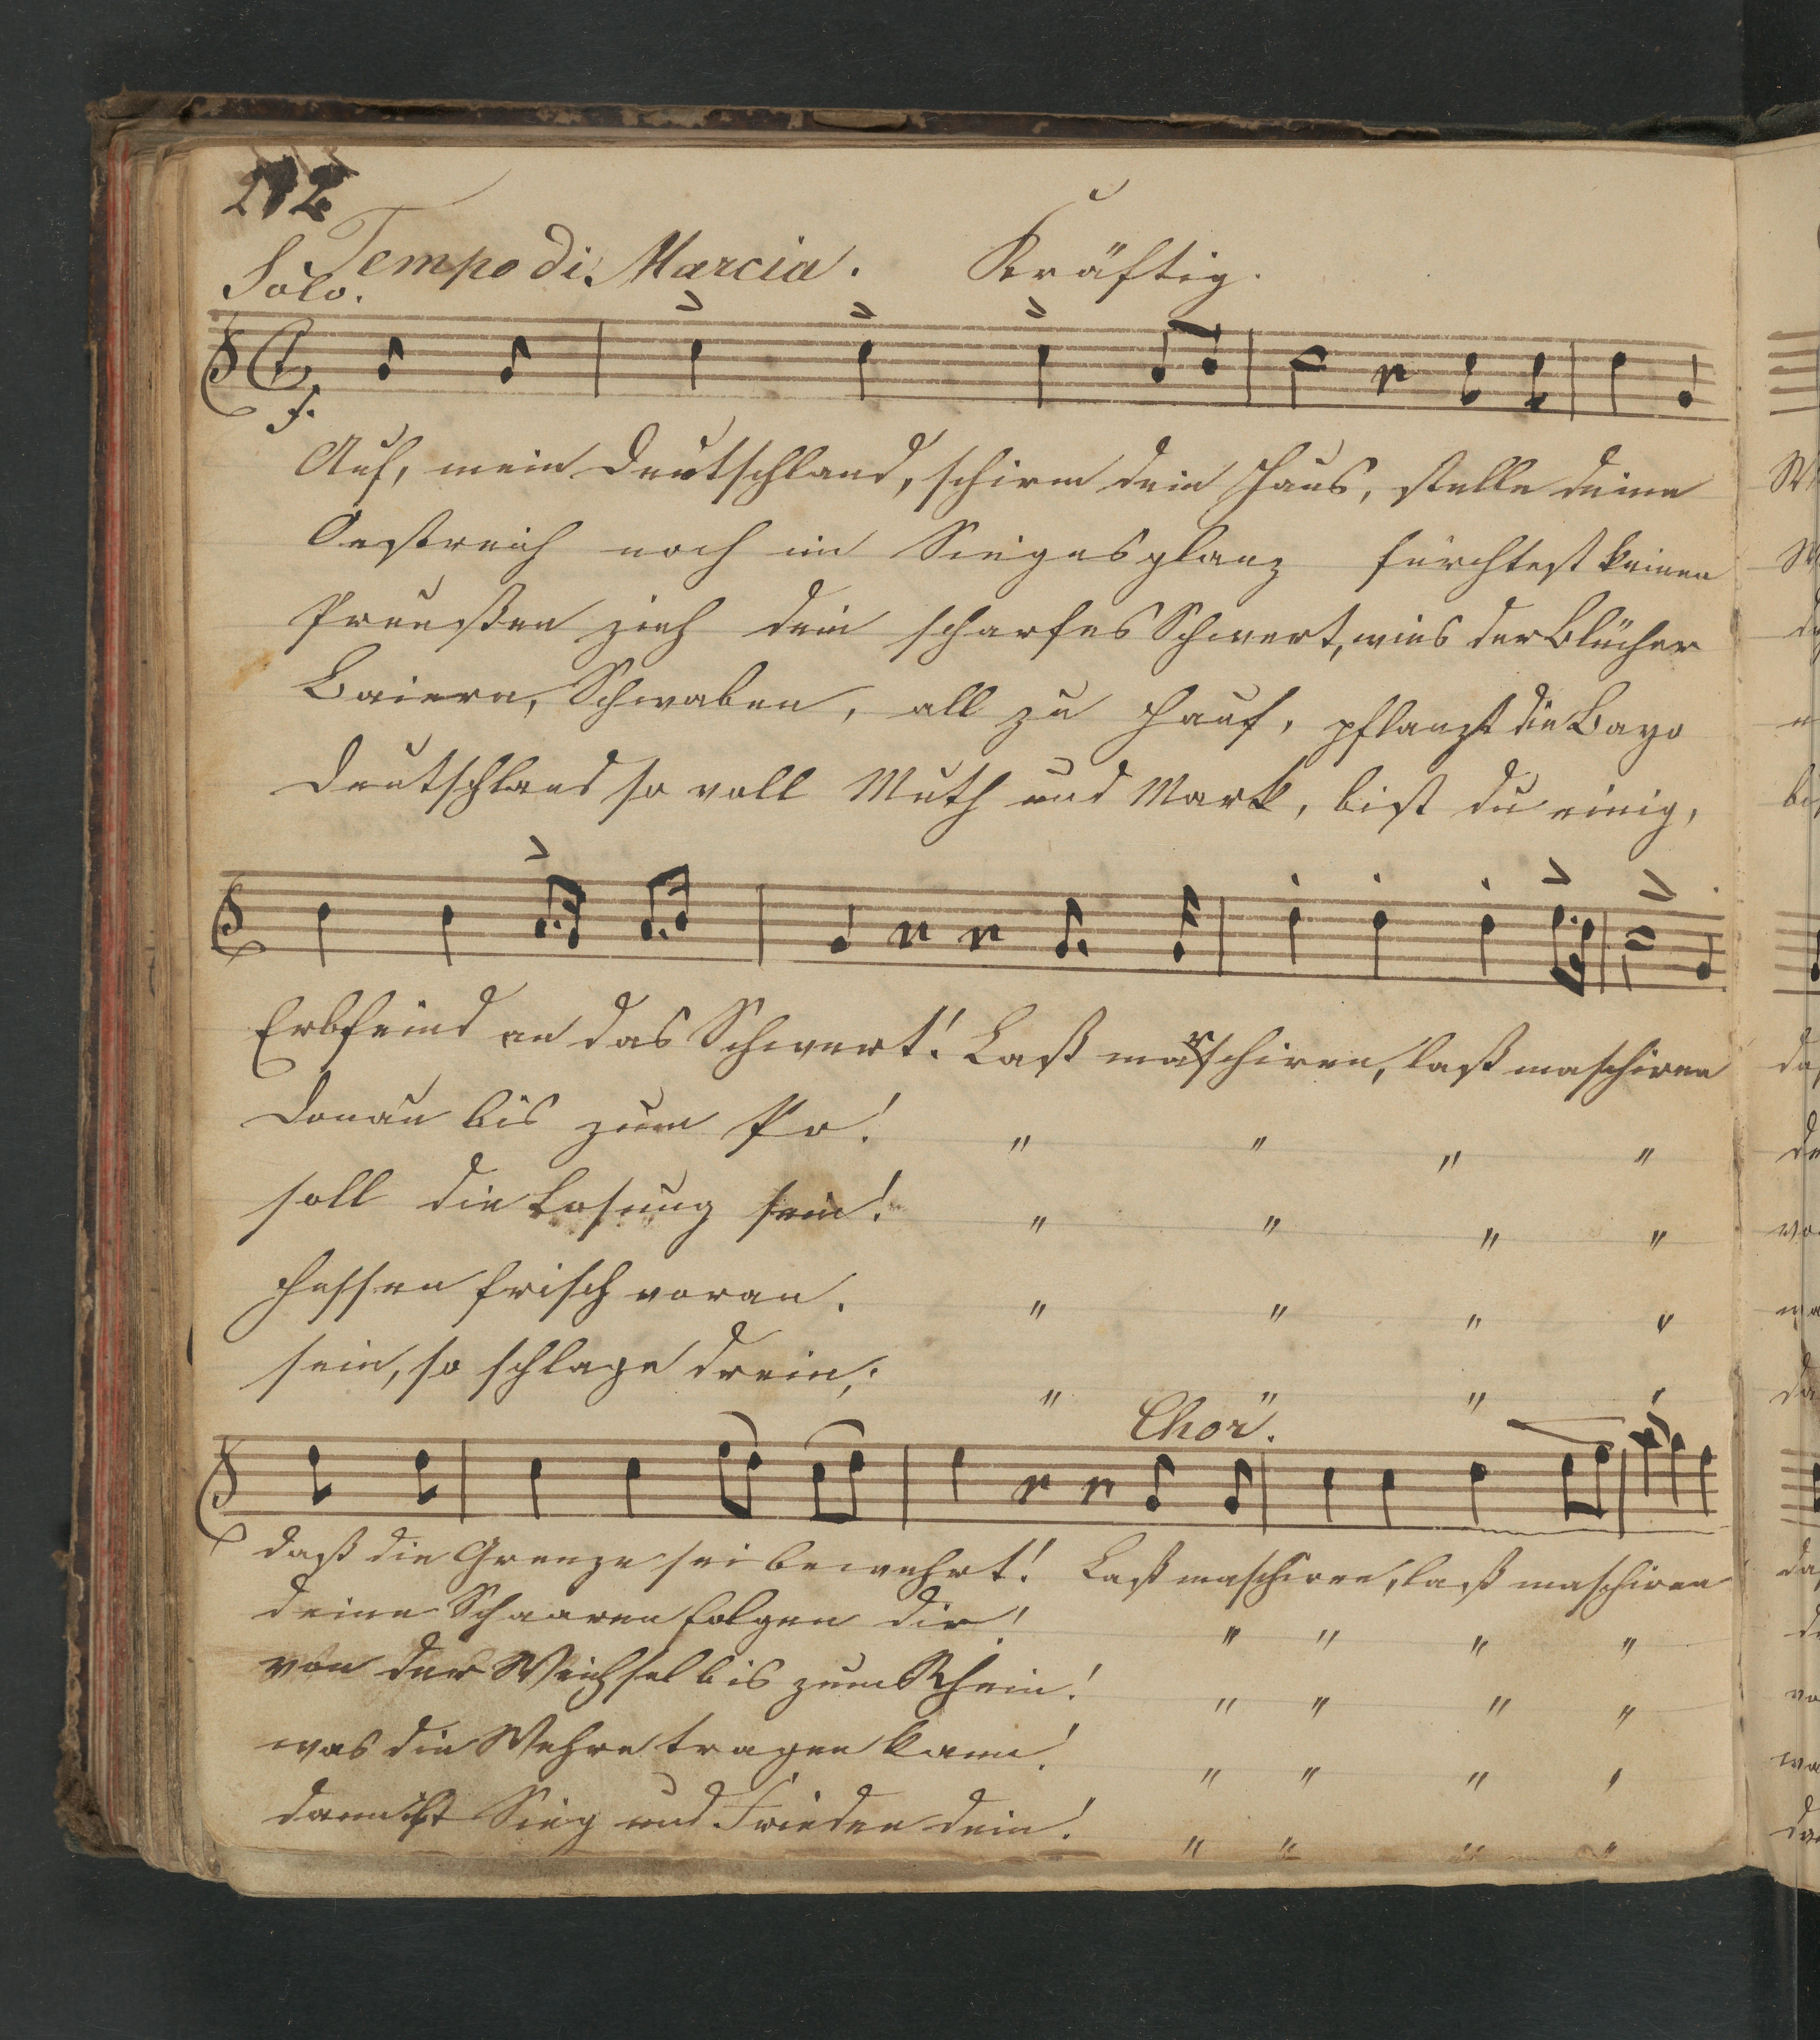 212
Tempo di Marcia. Kräftig.
Solo.
f.
Auf, mein Deutschland, schirm dein Haus, stelle deine
Oestreich noch im Siegesglanz fürchtest keinen
Preußen zieh dein scharfes Schwert, wies der Blücher
Baiern, Schwaben, all zu Hauf, pflanzt die Bayo
Deutschland so voll Muth und Mark, bist du einig,
Erbfeind an das Schwert! Laß marschiren, laß maschiren
Donau bis zum Po! " " " "
soll die Losung sein! " " " "
Hessen frisch voran. " " " "
sein, so schlage drein; " " " "
Chor.
daß die Grenze sei bewehrt! Laß maschiren, laß maschiren
deine Schaaren folgen dir! " " " "
von der Weichsel bis zum Rhein! " " " "
was die Wehre tragen kann! " " " "
dann ist Sieg und Frieden dein! " " " "